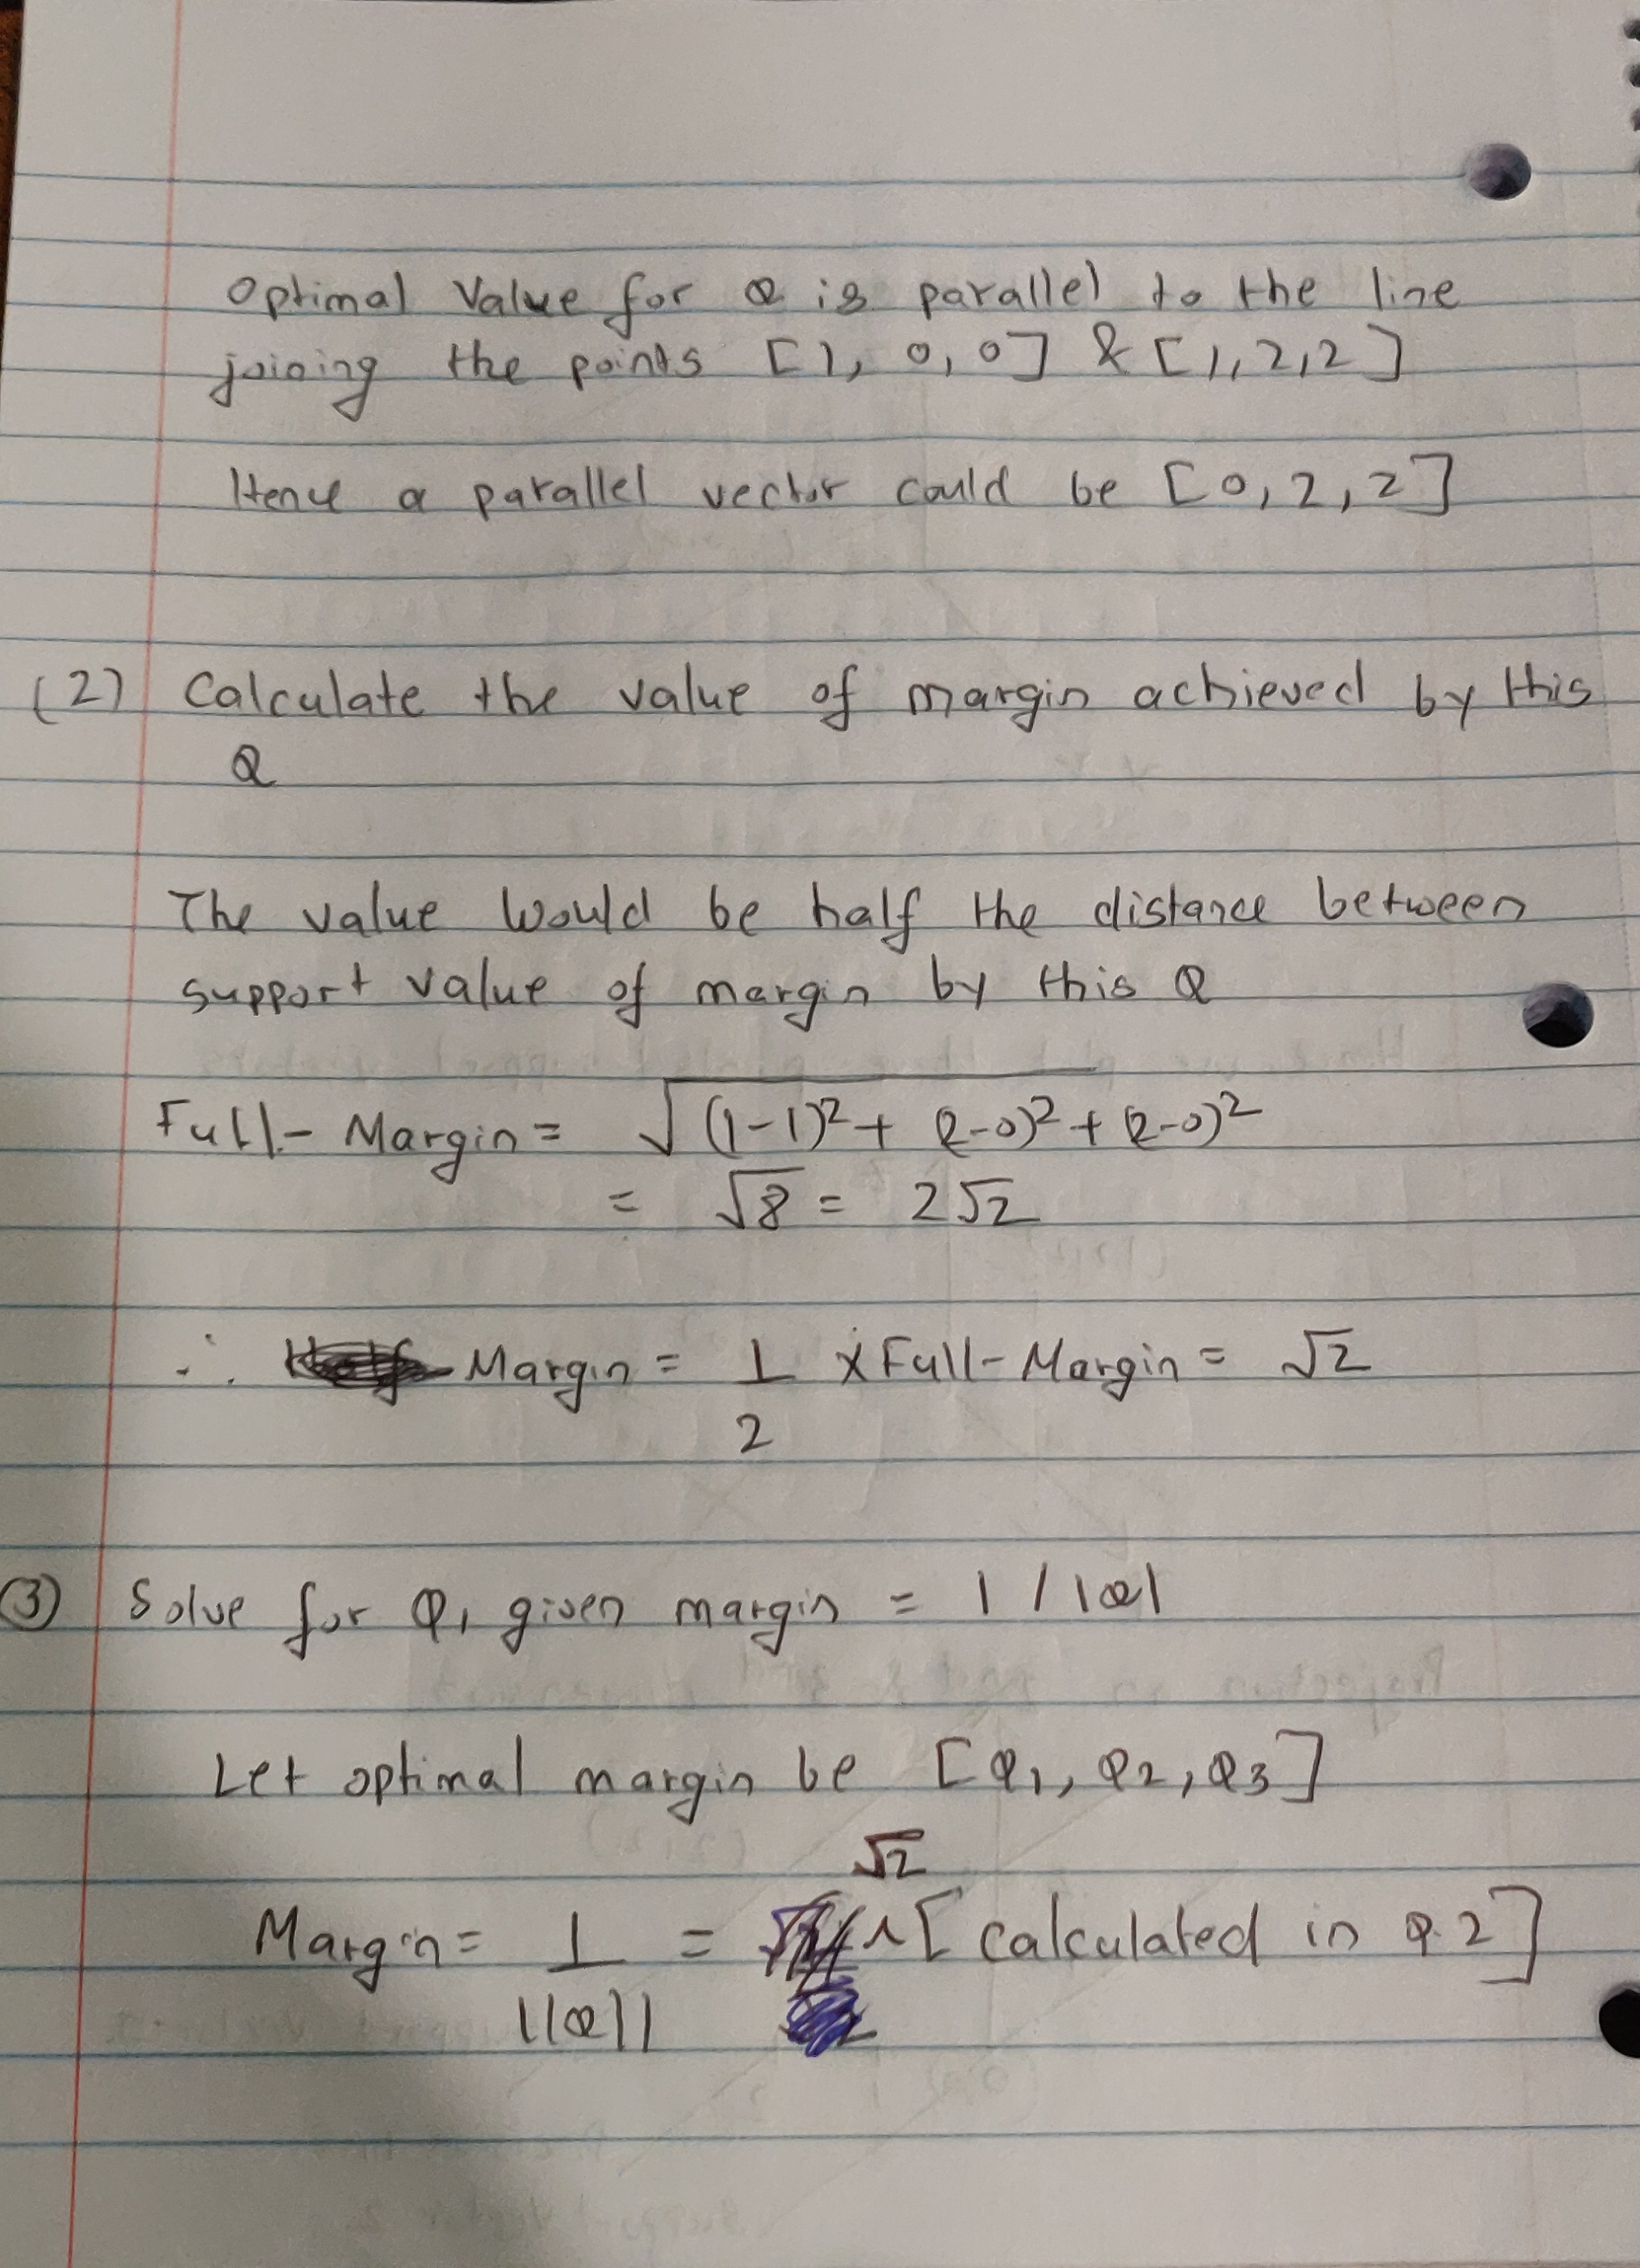 Optimal Value for Q is parallel to the line
joining the points [1, 0, 0] & [1, 2, 2]
Hence a parallel vector could be [0, 2, 2]
(2) Calculate the value of margin achieved by this
Q
The value would be half the distance between
support value of margin by this Q
Full-Margin = √(1-1)² + (2-0)² + (2-0)²
= √8 = 2√2
∴ Margin = 1/2 × Full-Margin = √2
(3) Solve for Q, given margin = 1 / |Q|
Let optimal margin be [Q1, Q2, Q3]
√2
Margin = 1/||Q|| = ^ [calculated in Q.2]